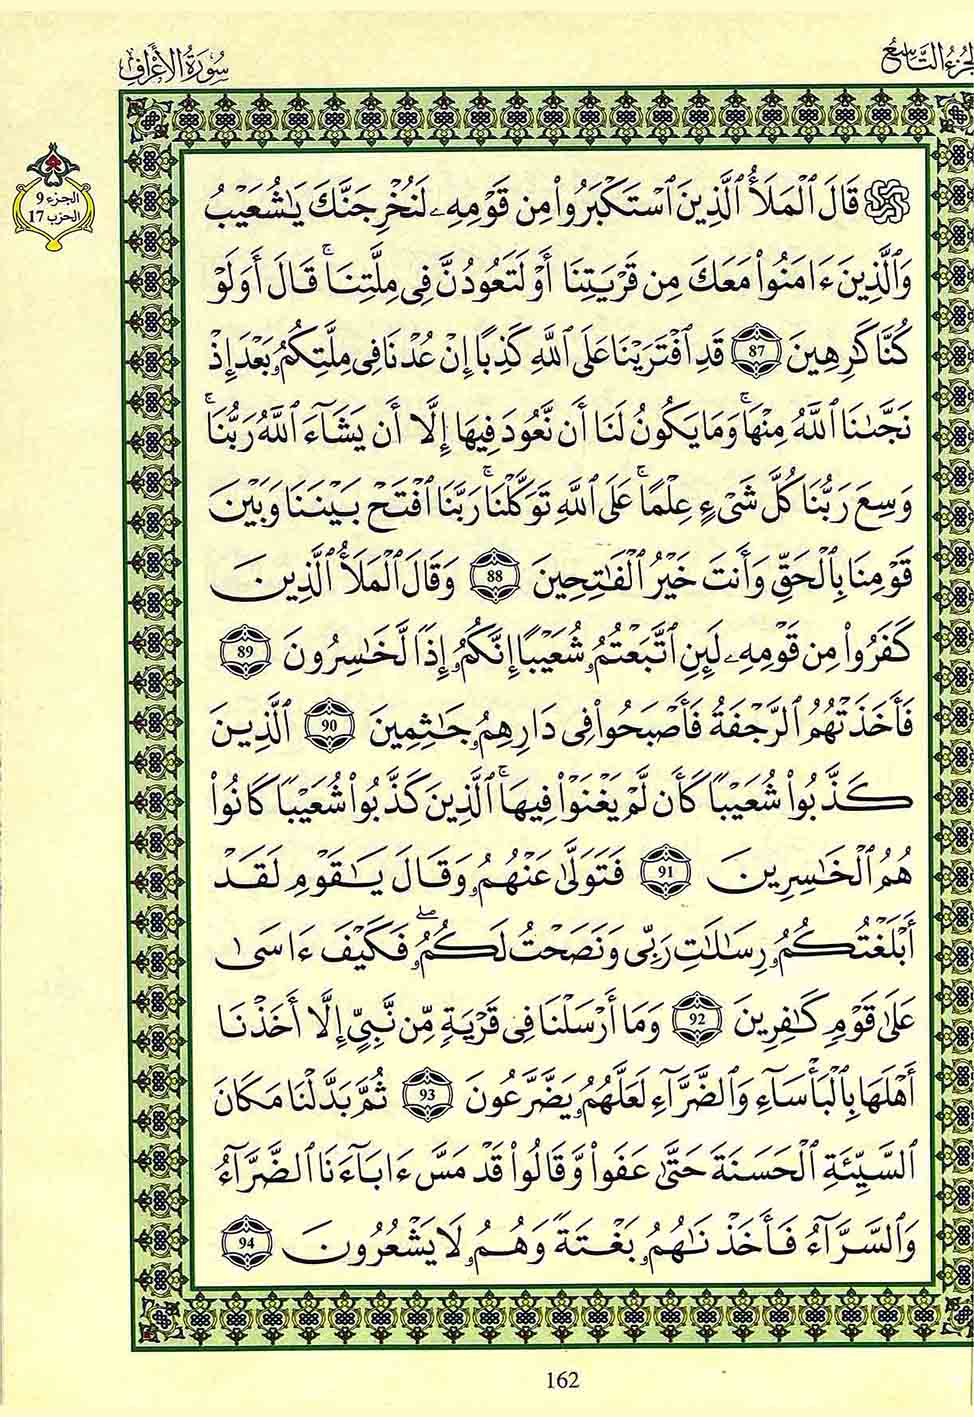 الجزء التاسع
سورة الأعراف
الجزء 9
الحزب 17
۞ قَالَ ٱلْمَلَأُ ٱلَّذِينَ ٱسْتَكْبَرُواْ مِن قَوْمِهِۦ لَنُخْرِجَنَّكَ يَٰشُعَيْبُ
وَٱلَّذِينَ ءَامَنُواْ مَعَكَ مِن قَرْيَتِنَا أَوْ لَتَعُودُنَّ فِى مِلَّتِنَاۚ قَالَ أَوَلَوْ
كُنَّا كَٰرِهِينَ 87 قَدِ ٱفْتَرَيْنَا عَلَى ٱللَّهِ كَذِبًا إِنْ عُدْنَا فِى مِلَّتِكُمُۥ بَعْدَ إِذْ
نَجَّىٰنَا ٱللَّهُ مِنْهَاۚ وَمَا يَكُونُ لَنَا أَن نَّعُودَ فِيهَا إِلَّا أَن يَشَآءَ ٱللَّهُ رَبُّنَاۚ
وَسِعَ رَبُّنَا كُلَّ شَىْءٍ عِلْمًاۚ عَلَى ٱللَّهِ تَوَكَّلْنَاۚ رَبَّنَا ٱفْتَحْ بَيْنَنَا وَبَيْنَ
قَوْمِنَا بِٱلْحَقِّ وَأَنتَ خَيْرُ ٱلْفَٰتِحِينَ 88 وَقَالَ ٱلْمَلَأُ ٱلَّذِينَ
كَفَرُواْ مِن قَوْمِهِۦ لَئِنِ ٱتَّبَعْتُمُۥ شُعَيْبًا إِنَّكُمُۥ إِذًا لَّخَٰسِرُونَ 89
فَأَخَذَتْهُمُ ٱلرَّجْفَةُ فَأَصْبَحُواْ فِى دَارِهِمُۥ جَٰثِمِينَ 90 ٱلَّذِينَ
كَذَّبُواْ شُعَيْبًا كَأَن لَّمْ يَغْنَوْاْ فِيهَاۚ ٱلَّذِينَ كَذَّبُواْ شُعَيْبًا كَانُواْ
هُمُ ٱلْخَٰسِرِينَ 91 فَتَوَلَّىٰ عَنْهُمُۥ وَقَالَ يَٰقَوْمِ لَقَدْ
أَبْلَغْتُكُمُۥ رِسَٰلَٰتِ رَبِّى وَنَصَحْتُ لَكُمُۥۖ فَكَيْفَ ءَاسَىٰ
عَلَىٰ قَوْمٍ كَٰفِرِينَ 92 وَمَا أَرْسَلْنَا فِى قَرْيَةٍ مِّن نَّبِىٍّ إِلَّا أَخَذْنَا
أَهْلَهَا بِٱلْبَأْسَآءِ وَٱلضَّرَّآءِ لَعَلَّهُمُۥ يَضَّرَّعُونَ 93 ثُمَّ بَدَّلْنَا مَكَانَ
ٱلسَّيِّئَةِ ٱلْحَسَنَةَ حَتَّىٰ عَفَواْ وَّقَالُواْ قَدْ مَسَّ ءَابَآءَنَا ٱلضَّرَّآءُ
وَٱلسَّرَّآءُ فَأَخَذْنَٰهُمُۥ بَغْتَةً وَهُمُۥ لَا يَشْعُرُونَ 94
162